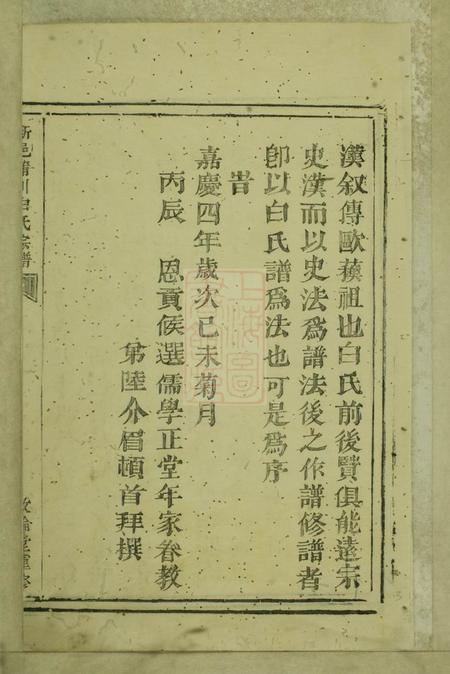 漢叙傳歐蘓祖也白氏前後賢俱能遠宗
史漢而以史法爲譜法後之作譜修譜者
卽以白氏譜爲法也可是爲序
旹
嘉慶四年歲次己未菊月
丙辰 恩貢候選儒學正堂年家眷教
弟陸介眉頓首拜撰
川白氏宗譜